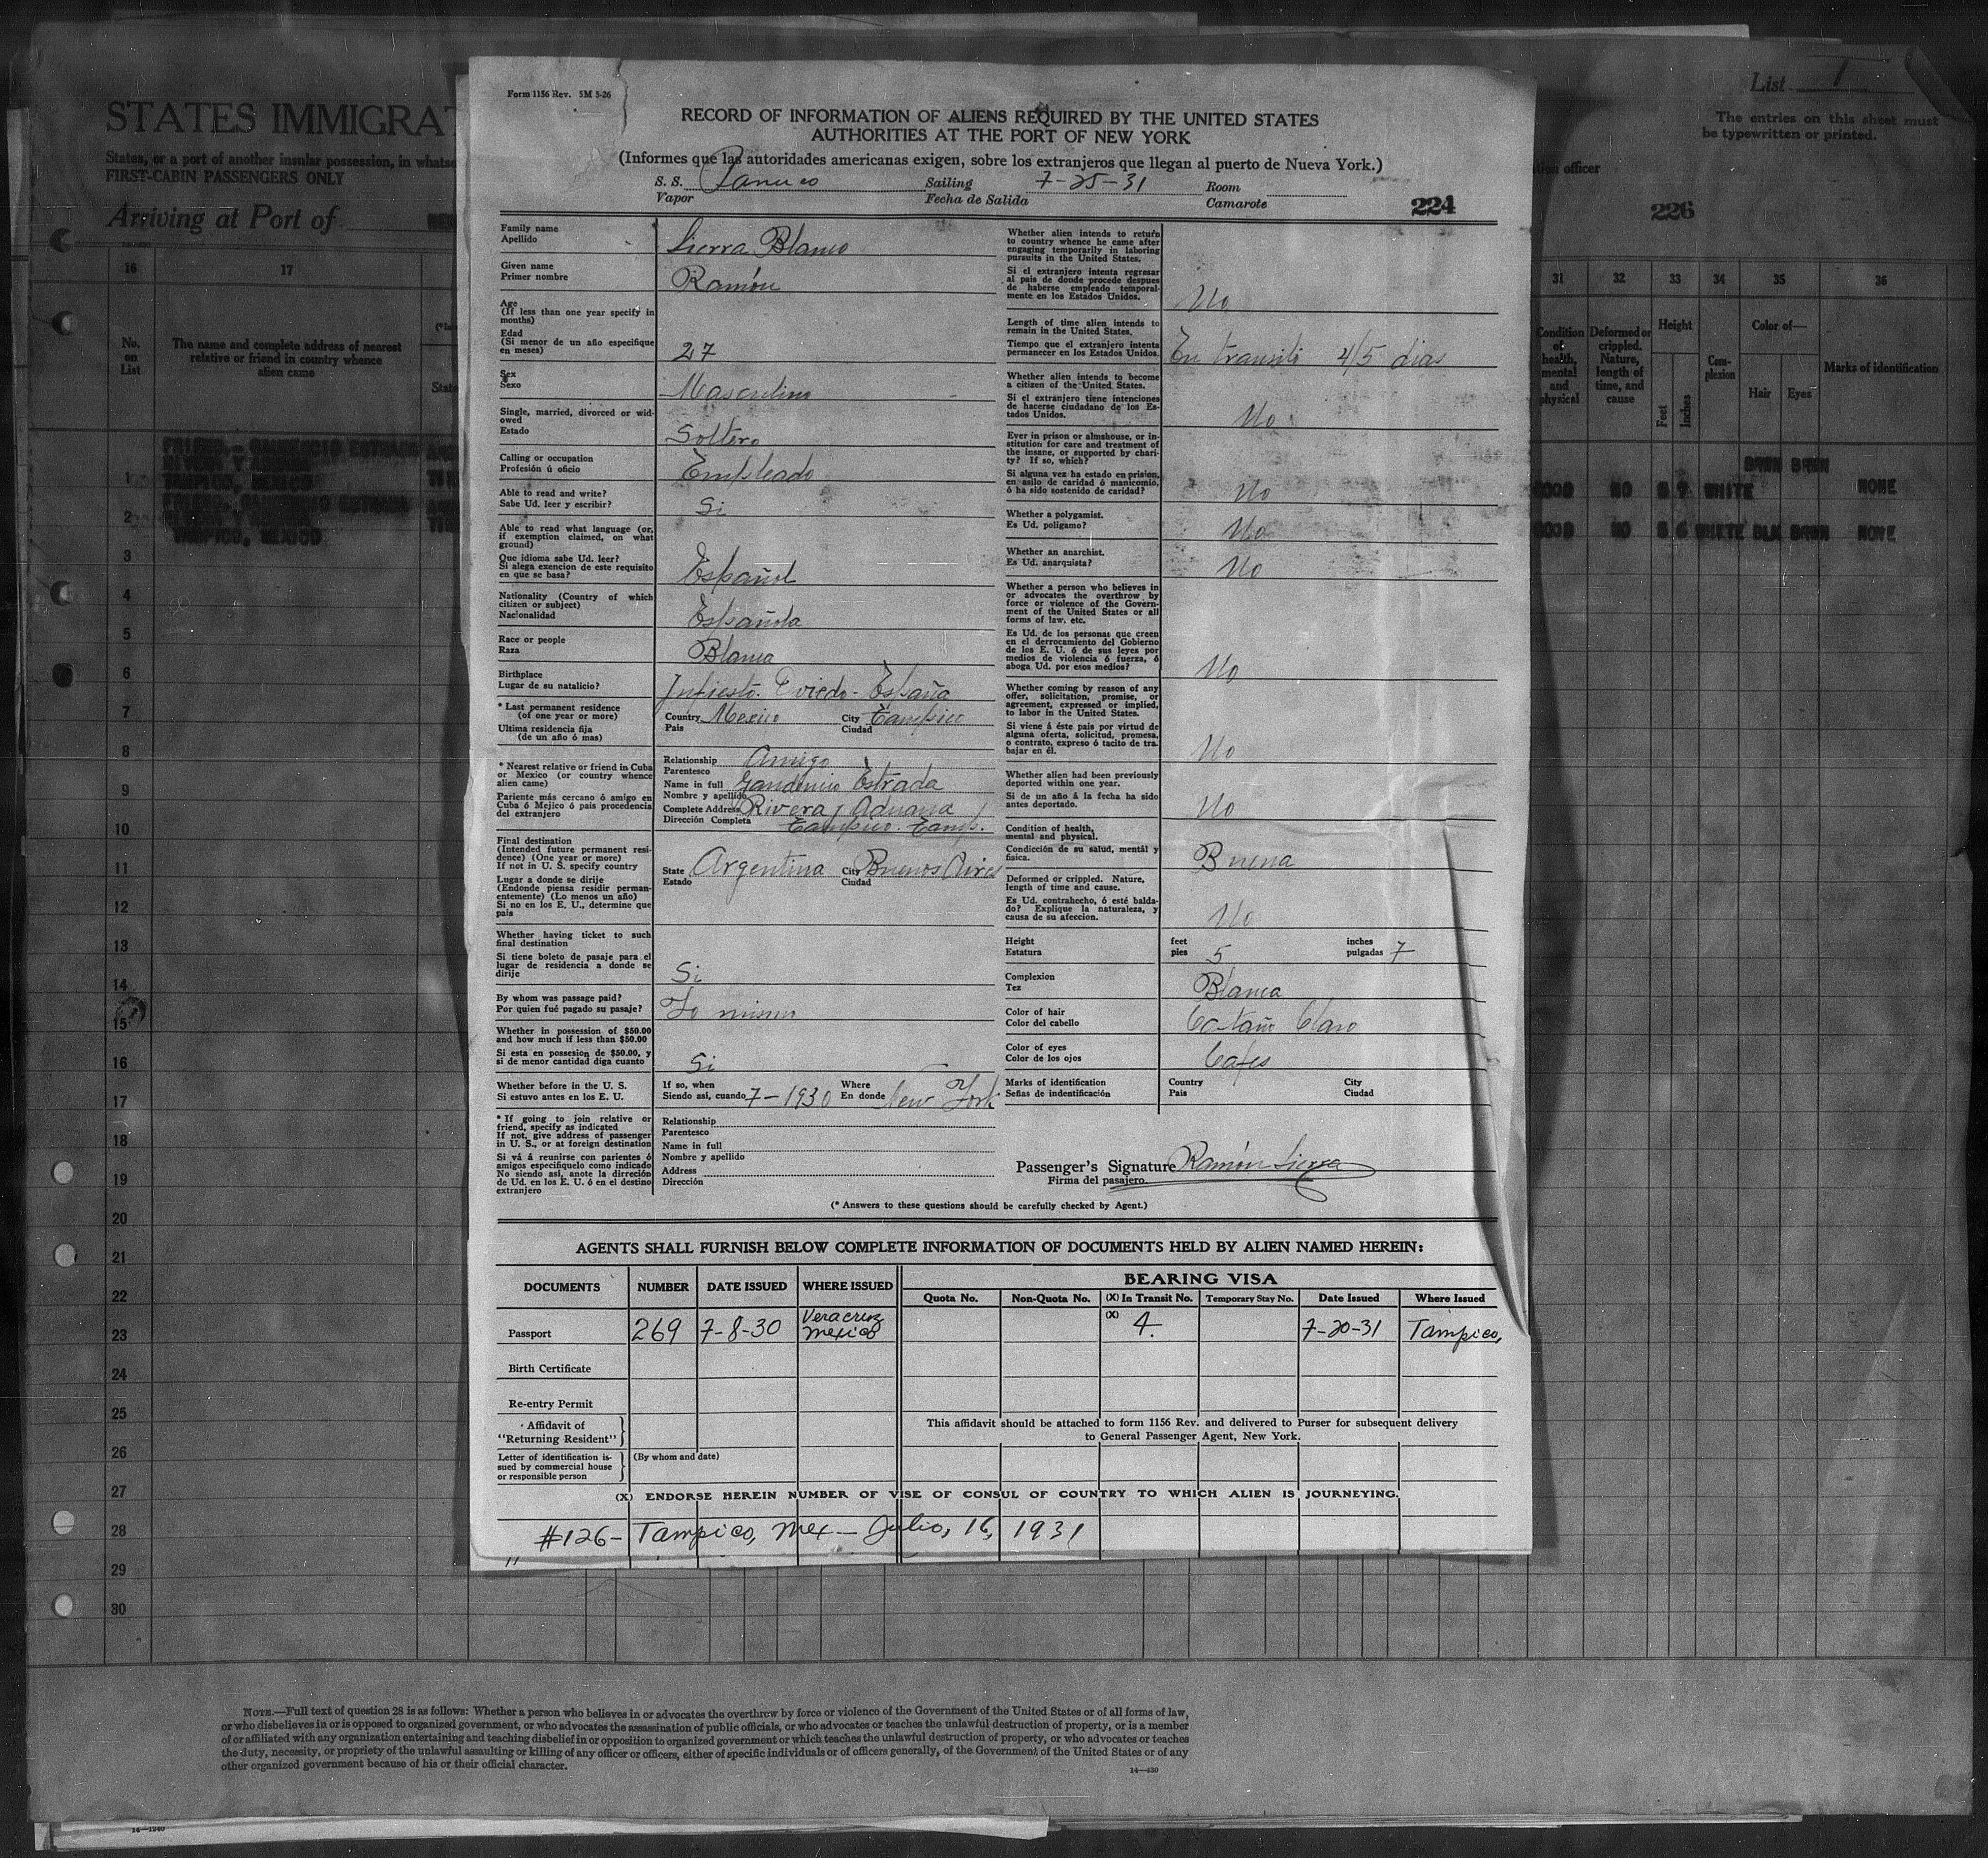 STATES IMMIGRAT
States, or a port of another insular possession, in whatso
FIRST-CABIN PASSENGERS ONLY
Arriving at Port of
List 1
The entries on this sheet must
be typewritten or printed.
officer
226
16
17
No.
on
List
The name and complete address of nearest
relative or friend in country whence
alien came
TAMPICO, MEXICO
TAMPICO, MEXICO
1
2
3
4
5
6
7
8
9
10
11
12
13
14
15
16
17
18
19
20
21
22
23
24
25
26
27
28
29
30
Form 1156 Rev. 5M 5-26
RECORD OF INFORMATION OF ALIENS REQUIRED BY THE UNITED STATES
AUTHORITIES AT THE PORT OF NEW YORK
(Informes que las autoridades americanas exigen, sobre los extranjeros que llegan al puerto de Nueva York.)
S. S. Panuco Sailing 7-25-31 Room
Vapor Fecha de Salida Camarote
224
Family name
Apellido
Sierra Blanco
Given name
Primer nombre
Ramón
Age
(If less than one year specify in
months)
Edad
(Si menor de un año especifique
en meses)
27
Sex
Sexo
Masculino
Single, married, divorced or wid-
owed
Estado
Soltero
Calling or occupation
Profesión ú oficio
Empleado
Able to read and write?
Sabe Ud. leer y escribir?
Si
Able to read what language (or,
if exemption claimed, on what
ground)
Que idioma sabe Ud. leer?
Si alega exencion de este requisito
en que se basa?
Español
Nationality (Country of which
citizen or subject)
Nacionalidad
Española
Race or people
Raza
Blanca
Birthplace
Lugar de su natalicio?
Infiesto. Oviedo - España
* Last permanent residence
(of one year or more)
Ultima residencia fija
(de un año ó mas)
Country Mexico City Tampico
Pais Ciudad
* Nearest relative or friend in Cuba
or Mexico (or country whence
alien came)
Pariente más cercano ó amigo en
Cuba ó Mejico ó pais procedencia
del extranjero
Relationship Amigo
Parentesco
Name in full Gaudencio Estrada
Nombre y apellido
Complete Address Rivera y Aduana
Dirección Completa Tampico. Tamp.
Final destination
(Intended future permanent resi-
dence) (One year or more)
If not in U. S. specify country
Lugar a donde se dirije
(Endonde piensa residir perman-
entemente) (Lo menos un año)
Si no en los E. U., determine que
pais
State Argentina City Buenos Aires
Estado Ciudad
Whether having ticket to such
final destination
Si tiene boleto de pasaje para el
lugar de residencia a donde se
dirije
Si
By whom was passage paid?
Por quien fué pagado su pasaje?
Yo mismo
Whether in possession of $50.00
and how much if less than $50.00
Si esta en possesion de $50.00, y
si de menor cantidad diga cuanto
Si
Whether before in the U. S.
Si estuvo antes en los E. U.
If so, when Where
Siendo asi, cuando 7-1930 En donde New York
* If going to join relative or
friend, specify as indicated
If not, give address of passenger
in U. S., or at foreign destination
Si vá á reunirse con parientes ó
amigos especifiquelo como indicado
No siendo asi, anote la dirreción
de Ud. en los E. U. ó en el destino
extranjero
Relationship
Parentesco
Name in full
Nombre y apellido
Address
Dirección
Whether alien intends to return
to country whence he came after
engaging temporarily in laboring
pursuits in the United States.
Si el extranjero intenta regresar
al pais de donde procede despues
de haberse empleado temporal-
mente en los Estados Unidos.
No
Length of time alien intends to
remain in the United States.
Tiempo que el extranjero intenta
permanecer en los Estados Unidos.
En transito 4/5 dias
Whether alien intends to become
a citizen of the United States.
Si el extranjero tiene intenciones
de hacerse ciudadano de los Es-
tados Unidos.
No
Ever in prison or almshouse, or in-
stitution for care and treatment of
the insane, or supported by chari-
ty? If so, which?
Si alguna vez ha estado en prision,
en asilo de caridad ó manicomio,
ó ha sido sostenido de caridad?
No
Whether a polygamist.
Es Ud. poligamo?
No
Whether an anarchist.
Es Ud. anarquista?
No
Whether a person who believes in
or advocates the overthrow by
force or violence of the Govern-
ment of the United States or all
forms of law, etc.
Es Ud. de los personas que creen
en el derrocamiento del Gobierno
de los E. U. ó de sus leyes por
medios de violencia ó fuerza, ó
aboga Ud. por esos medios?
No
Whether coming by reason of any
offer, solicitation, promise, or
agreement, expressed or implied,
to labor in the United States.
Si viene á éste pais por virtud de
alguna oferta, solicitud, promesa,
o contrato, expreso ó tacito de tra-
bajar en él.
No
Whether alien had been previously
deported within one year.
Si de un año á la fecha ha sido
antes deportado.
No
Condition of health,
mental and physical.
Condicción de su salud, mentál y
fisica.
Buena
Deformed or crippled. Nature,
length of time and cause.
Es Ud. contrahecho, ó esté balda-
do? Explique la naturaleza, y
causa de su afeccion.
No
Height feet inches
Estatura pies 5 pulgadas 7
Complexion
Tez
Blanca
Color of hair
Color del cabello
Castaño Claro
Color of eyes
Color de los ojos
Cafes
Marks of identification Country City
Señas de indentificación Pais Ciudad
Passenger's Signature Ramón Sierra
Firma del pasajero.
(* Answers to these questions should be carefully checked by Agent.)
AGENTS SHALL FURNISH BELOW COMPLETE INFORMATION OF DOCUMENTS HELD BY ALIEN NAMED HEREIN:
DOCUMENTS NUMBER DATE ISSUED WHERE ISSUED BEARING VISA
Quota No. Non-Quota No. (X) In Transit No. Temporary Stay No. Date Issued Where Issued
Passport 269 7-8-30 Veracruz Mexico (X) 4. 7-20-31 Tampico,
Birth Certificate
Re-entry Permit
Affidavit of
"Returning Resident"
This affidavit should be attached to form 1156 Rev. and delivered to Purser for subsequent delivery
to General Passenger Agent, New York.
Letter of identification is-
sued by commercial house
or responsible person
(By whom and date)
(X) ENDORSE HEREIN NUMBER OF VISE OF CONSUL OF COUNTRY TO WHICH ALIEN IS JOURNEYING.
#126- Tampico, Mex - Julio, 16, 1931
31 32 33 34 35 36
Condition
of
health,
mental
and
physical
Deformed or
crippled.
Nature,
length of
time, and
cause
Height
Feet
Inches
Com-
plexion
Color of—
Hair
Eyes
Marks of identification
BRWN BRWN
GOOD NO 5 7 WHITE NONE
GOOD NO 5 6 WHITE BLK BRWN NONE
NOTE.—Full text of question 28 is as follows: Whether a person who believes in or advocates the overthrow by force or violence of the Government of the United States or of all forms of law,
or who disbelieves in or is opposed to organized government, or who advocates the assassination of public officials, or who advocates or teaches the unlawful destruction of property, or is a member
of or affiliated with any organization entertaining and teaching disbelief in or opposition to organized government or which teaches the unlawful destruction of property, or who advocates or teaches
the duty, necessity, or propriety of the unlawful assaulting or killing of any officer or officers, either of specific individuals or of officers generally, of the Government of the United States or of any
other organized government because of his or their official character.
14—430
14—1240